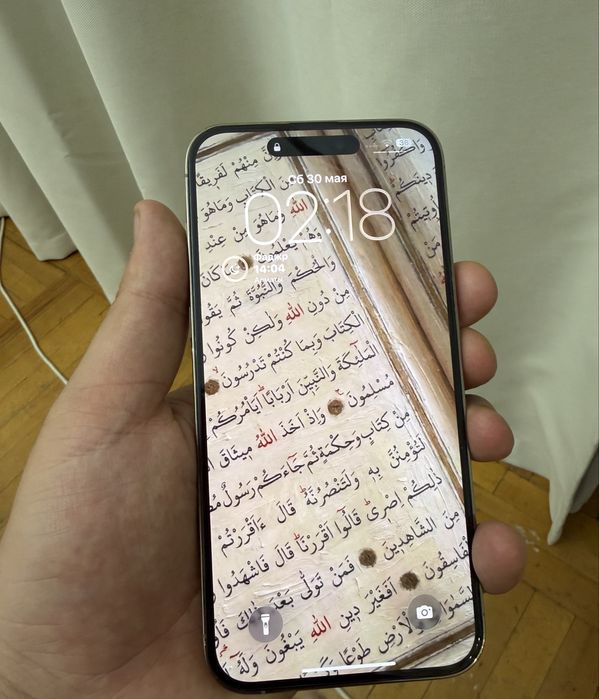 38
Сб 30 мая
02:18
Фаджр
14:04
مِنْهُمْ لَفَرِيقًا
الْكِتَابِ وَمَاهُوَ
اللهِ وَمَاهُوَ مِنْ عِنْدِ
وَهُمْ يَعْلَمُونَ مَا كَانَ
وَالْحُكْمَ وَالنُّبُوَّةَ ثُمَّ يَقُو
مِنْ دُونِ اللهِ وَلٰكِنْ كُونُوا
الْكِتَابَ وَبِمَا كُنْتُمْ تَدْرُسُونَ
الْمَلٰٓئِكَةَ وَالنَّبِيّنَ اَرْبَابًا اَيَأْمُرُكُمْ
مُسْلِمُونَ وَاِذْ اَخَذَ اللهُ مِيثَاقَ
مِنْ كِتَابٍ وَحِكْمَةٍ ثُمَّ جَٓاءَكُمْ رَسُولٌ
لَتُؤْمِنُنَّ بِهٖ وَلَتَنْصُرُنَّهُ قَالَ ءَاَقْرَرْتُمْ
ذٰلِكُمْ اِصْرٖى قَالُوا اَقْرَرْنَا قَالَ فَاشْهَدُوا
مِنَ الشَّاهِدٖينَ فَمَنْ تَوَلّٰى بَعْدَ ذٰلِكَ
لْفَاسِقُونَ اَفَغَيْرَ دٖينِ اللهِ يَبْغُونَ وَلَهُ
السَّمٰوَاتِ وَالْاَرْضِ طَوْعًا